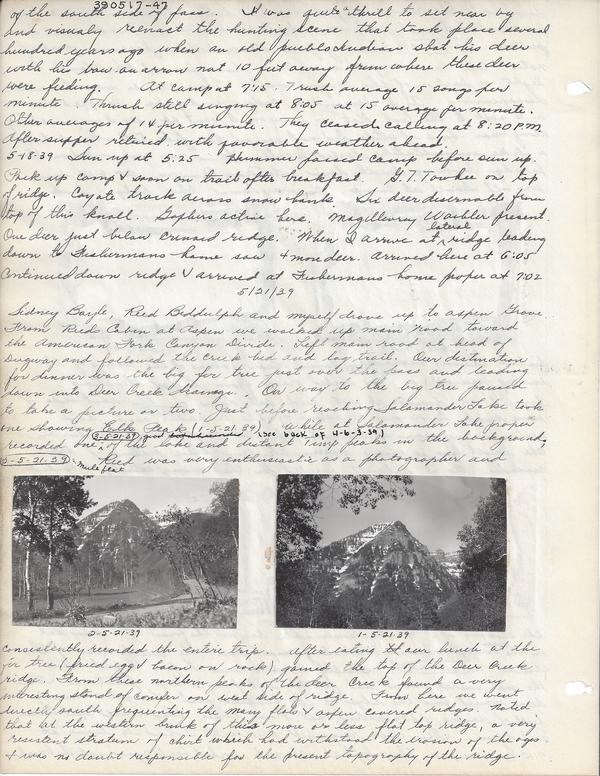 390517-47
of the south side of pass. It was quite a thrill to set near by
and visualy reenact the hunting scene that took place several
hundred years ago when an old pueblo indian shot his deer
with his bow an arrow not 10 feet away from where these deer
were feeding. At camp at 7:15. Trush average 15 songs per
minute. Thrush still singing at 8:05 at 15 average per minute.
Other averages of 14 per minute. They ceased calling at 8:20 P.M.
After supper retired with favorable weather ahead.
5-18-39 Sun up at 5:25 Hummer passed camp before sun up.
Pack up camp & soon on trail after breakfast. G.T. Towhee on top
of ridge. Coyote track across snow bank. Six deer discernable from
top of this knoll. Gophers active here. Magillivray Warbler present.
One deer just below crinoid ridge. When I arrive at lateral ridge leading
down to Fishermans home saw 4 more deer. arrived here at 6:05
Continued down ridge & arrived at Fishermans home proper at 7:02
5/21/39
Sidney Bayle, Reed Biddulph and myself drove up to Aspen Grove.
From Reids Cabin at Aspen we walked up main road toward
the American Fork Canyon Divide. Left main road at head of
Dugway and followed the creek bed and log trail. Our destination
for dinner was the big fir tree just over the pass and leading
down into Deer Creek drainage. On way to the big tree paused
to take a picture or two. Just before reaching Salamander Lake took
one showing Elk Peak (1-5-21-39) while at Salamander Lake proper
(3-5-21-39) good (see back of 4-6-3-39)
recorded one of the lake and distant Timp peaks in the background,
(2-5-21-39) mule flat Reed was very enthusiastic as a photographer and
2-5-21-39
1-5-21-39
consistently recorded the entire trip. After eating our lunch at the
fir tree (fried egg & bacon on rock) gained the top of the Deer Creek
ridge. From these northern peaks of the deer Creek found a very
interesting stand of conifer on west side of ridge. From here we went
directly south frequenting the many flats & aspen covered ridges. Noted
that at the western brink of this more or less flat top ridge, a very
resistent stratum of chirt which had withstood the erosion of the ages
& was no doubt responsible for the present topography of the ridge.